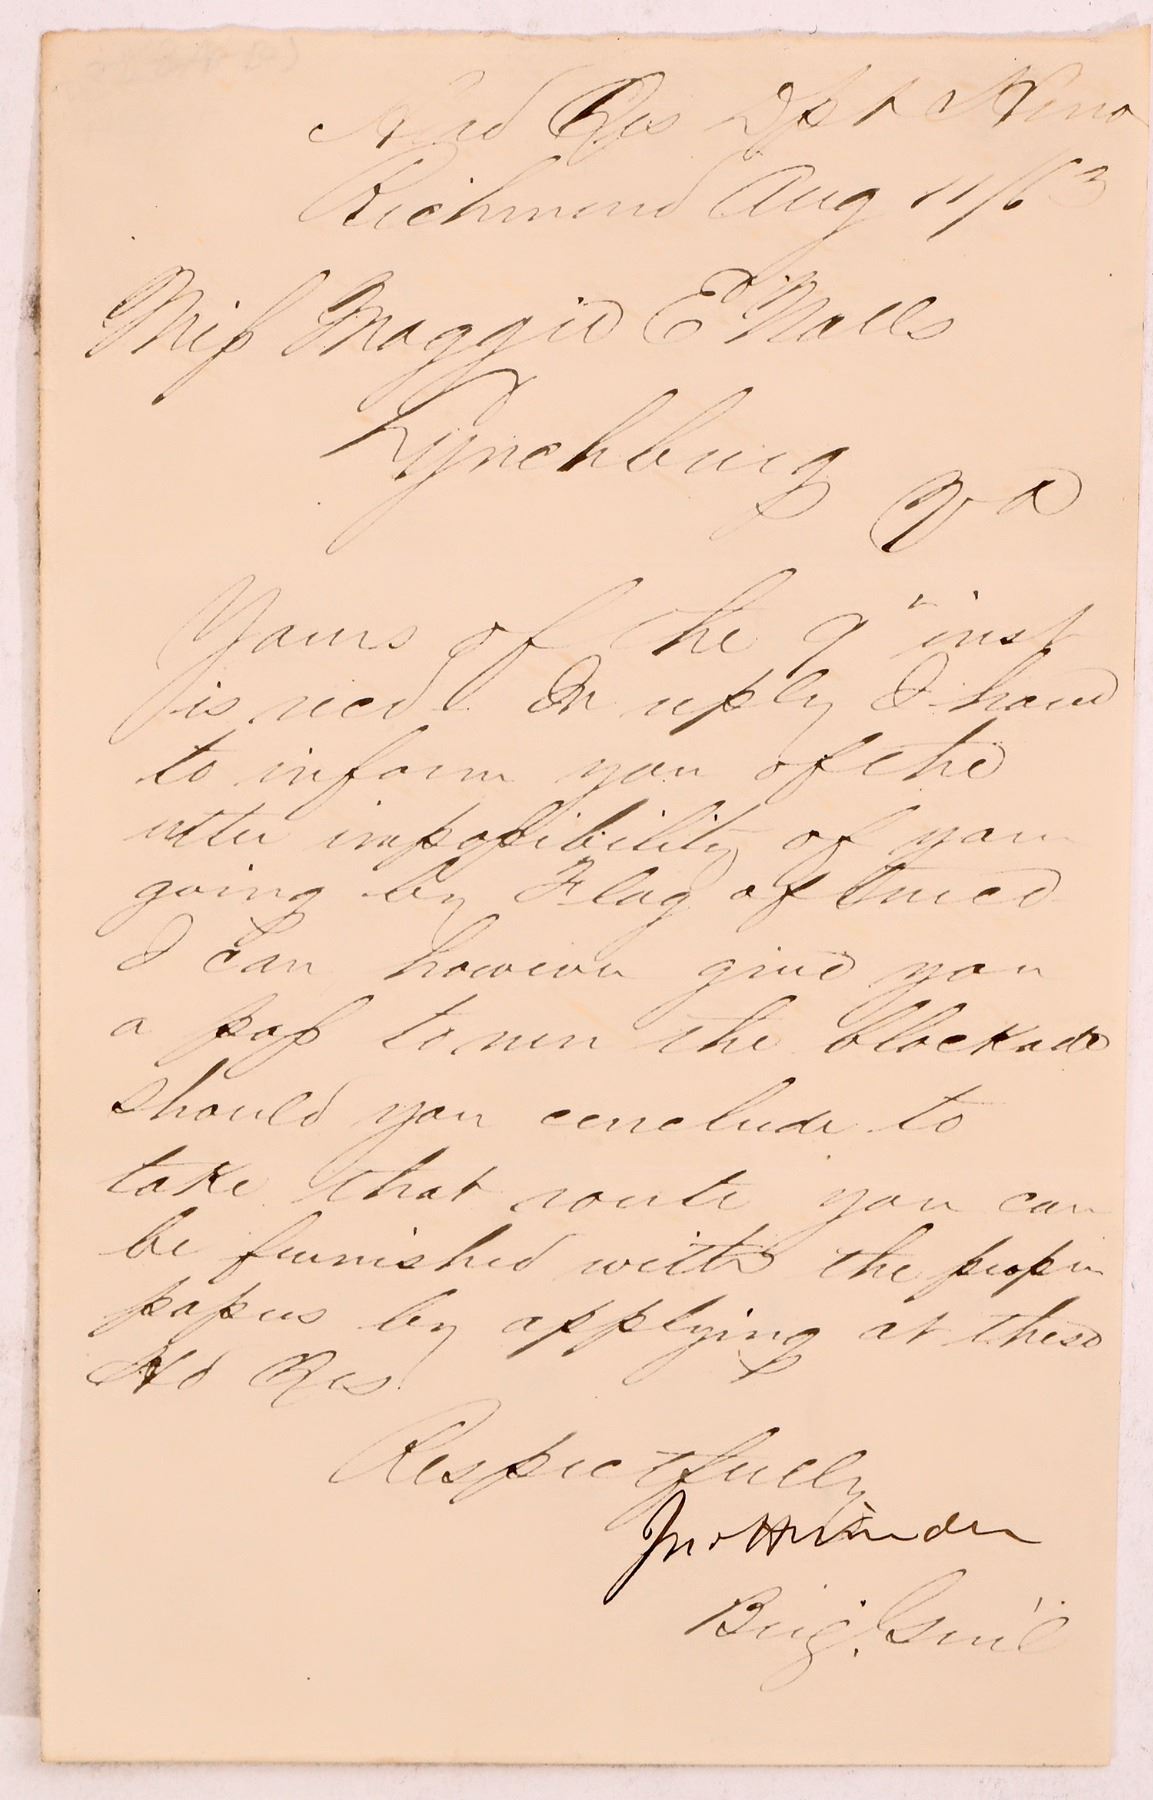 Head Qrs Dpt Henrico
Richmond Aug 11/63
Miss Maggie E Nalls
Lynchburg
Va
Yours of the 9" inst
is recd. In reply I have
to inform you of the
utter impossibility of your
going by Flag of Truce
I can however give you
a pass to run the blockade
should you conclude to
take that route you can
be furnished with the proper
papers by applying at these
Hd Qrs
Respectfully
Jno H Winder
Brig. Gen'l